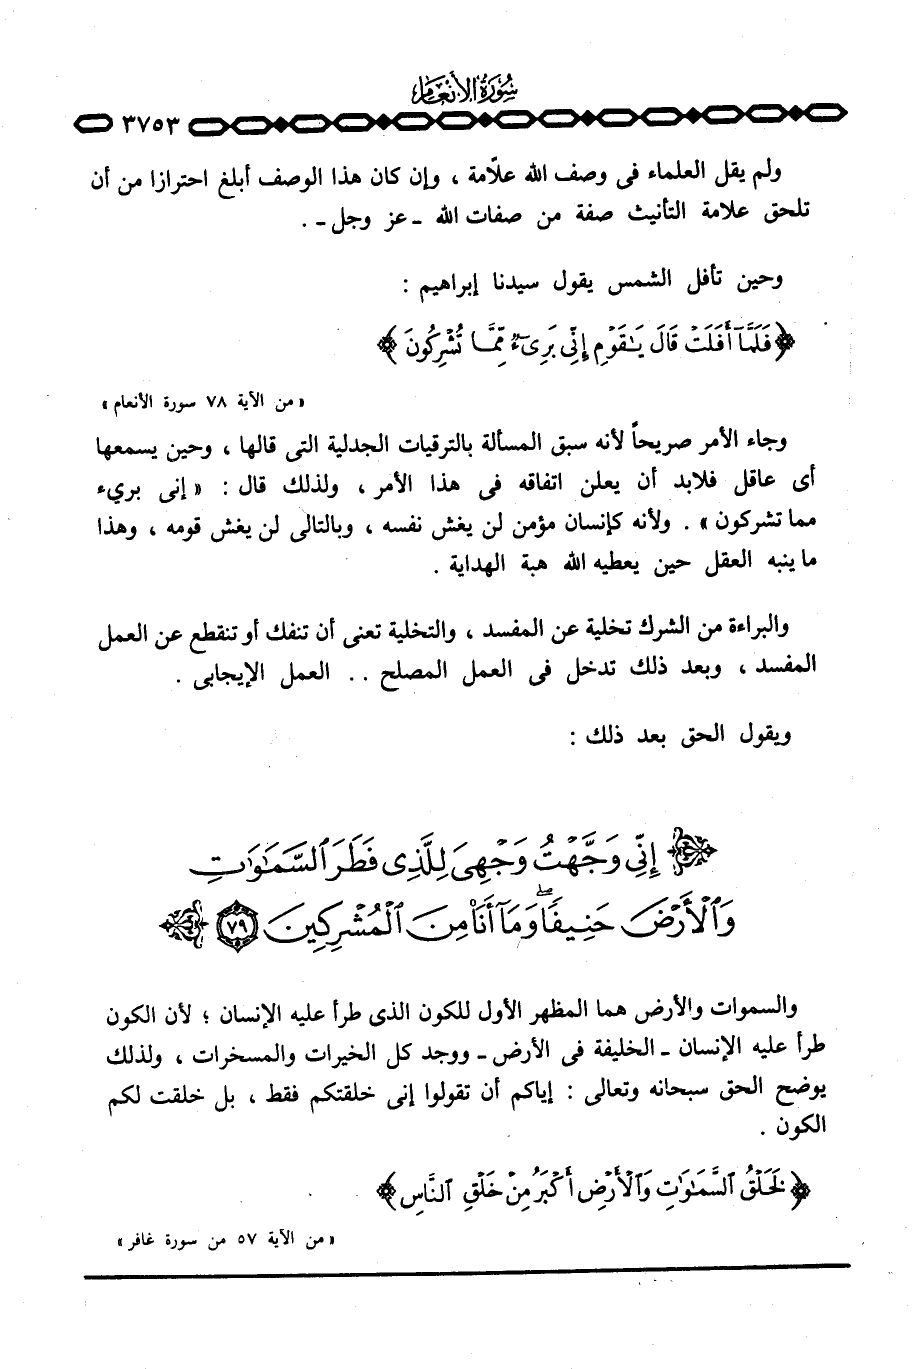 سورة الأنعام
٣٧٥٣
ولم يقل العلماء فى وصف الله علاّمة ، وإن كان هذا الوصف أبلغ احترازا من أن
تلحق علامة التأنيث صفة من صفات الله ـ عز وجل ـ .
وحين تأفل الشمس يقول سيدنا إبراهيم :
﴿ فَلَمَّآ أَفَلَتْ قَالَ يَٰقَوْمِ إِنِّى بَرِىٓءٌ مِّمَّا تُشْرِكُونَ ﴾
« من الآية ٧٨ سورة الأنعام »
وجاء الأمر صريحاً لأنه سبق المسألة بالترقيات الجدلية التى قالها ، وحين يسمعها
أى عاقل فلابد أن يعلن اتفاقه فى هذا الأمر ، ولذلك قال : « إنى بريء
مما تشركون » . ولأنه كإنسان مؤمن لن يغش نفسه ، وبالتالى لن يغش قومه ، وهذا
ما ينبه العقل حين يعطيه الله هبة الهداية .
والبراءة من الشرك تخلية عن المفسد ، والتخلية تعنى أن تنفك أو تنقطع عن العمل
المفسد ، وبعد ذلك تدخل فى العمل المصلح .. العمل الإيجابى .
ويقول الحق بعد ذلك :
﴿ إِنِّى وَجَّهْتُ وَجْهِىَ لِلَّذِى فَطَرَ ٱلسَّمَٰوَٰتِ
وَٱلْأَرْضَ حَنِيفًا ۖ وَمَآ أَنَا۠ مِنَ ٱلْمُشْرِكِينَ ٧٩ ﴾
والسموات والأرض هما المظهر الأول للكون الذى طرأ عليه الإنسان ؛ لأن الكون
طرأ عليه الإنسان ـ الخليفة فى الأرض ـ ووجد كل الخيرات والمسخرات ، ولذلك
يوضح الحق سبحانه وتعالى : إياكم أن تقولوا إنى خلقتكم فقط ، بل خلقت لكم
الكون .
﴿ لَخَلْقُ ٱلسَّمَٰوَٰتِ وَٱلْأَرْضِ أَكْبَرُ مِنْ خَلْقِ ٱلنَّاسِ ﴾
« من الآية ٥٧ من سورة غافر »